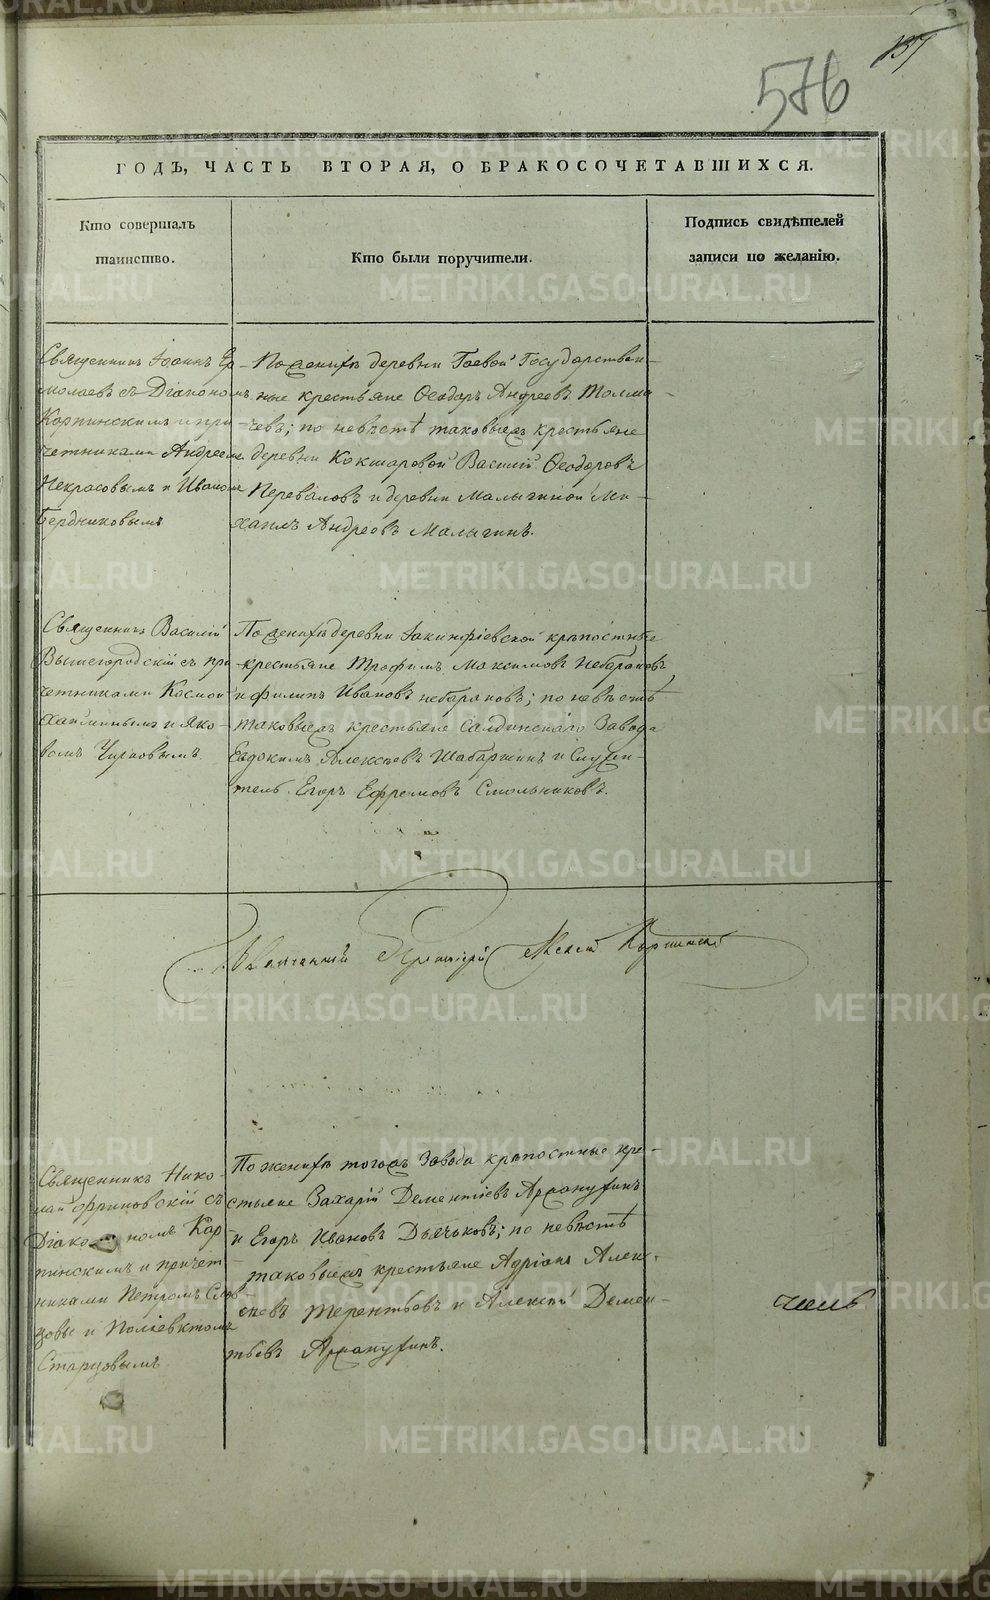 137
576
ГОДЪ, ЧАСТЬ ВТОРАЯ, О БРАКОСОЧЕТАВШИХСЯ.
Кто совершалъ
таинство.
Кто были поручители.
Подпись свидѣтелей
записи по желанію.
Священникъ Іоаннъ Ер-
молаевъ съ Діакономъ
Карпинскимъ и при-
четниками Андреемъ
Некрасовымъ и Иваномъ
Бердниковымъ
По женихѣ деревни Гаевой Государствен-
ные крестьяне Ѳеодоръ Андреевъ Толма-
чевъ; по невѣстѣ таковыежъ крестьяне
деревни Кокшаровой Василій Ѳеодоровъ
Переваловъ и деревни Малыгиной Ми-
хаилъ Андреевъ Малыгинъ.
Священникъ Василій
Вышегородскій съ при
четниками Космой
и Яко-
вомъ Чирковымъ
По женихѣ деревни Іакинфіевской крѣпостные
крестьяне Трофимъ Максимовъ Небараковъ
и Филипъ Ивановъ Небараковъ; по невѣстѣ
таковыежъ крестьяне Салдинскаго Завода
Евдокимъ Алексѣевъ Шабаршинъ и Служи-
тель Егоръ Ефремовъ Смольниковъ.
Алексій Карпинскій
Священникъ Нико-
лай Фрриновскій съ
Діакономъ Кар
пинскимъ и причет
никами Петромъ Слов
цовы и Поліевктомъ
Старцовымъ
По женихѣ тогожъ Завода крѣпостные кре-
стьяне Захарій Дементіевъ Арранухинъ
и Егоръ Ивановъ Дьячковъ; по невѣстѣ
таковыежъ крестьяне Адріанъ Алек-
сѣевъ Терентьевъ и Алексѣй Демен-
тьевъ Арранухинъ.
METRIKI.GASO-URAL.RU